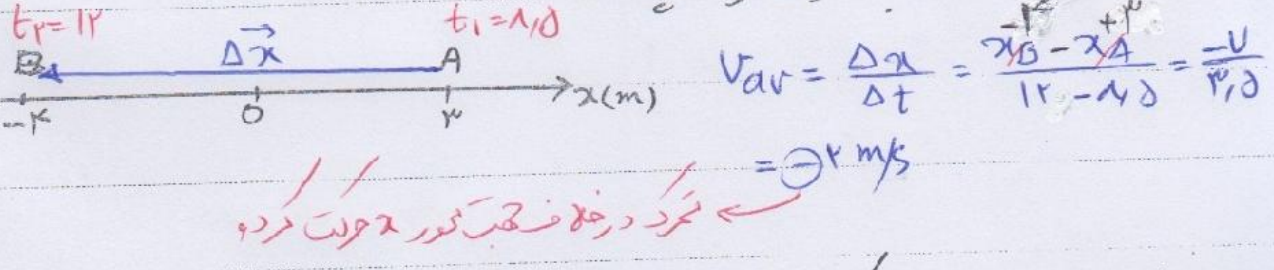 t₂ = ۱۲    t₁ = ۸,۵
B    Δx⃗    A
-۴    ۰    ۳    x(m)
Vav = Δx/Δt = (xB - xA)/(۱۲ - ۸,۵) = -۷/۳,۵
-۴    +۳
= -۲ m/s
← متحرک در خلاف جهت محور x حرکت کرده